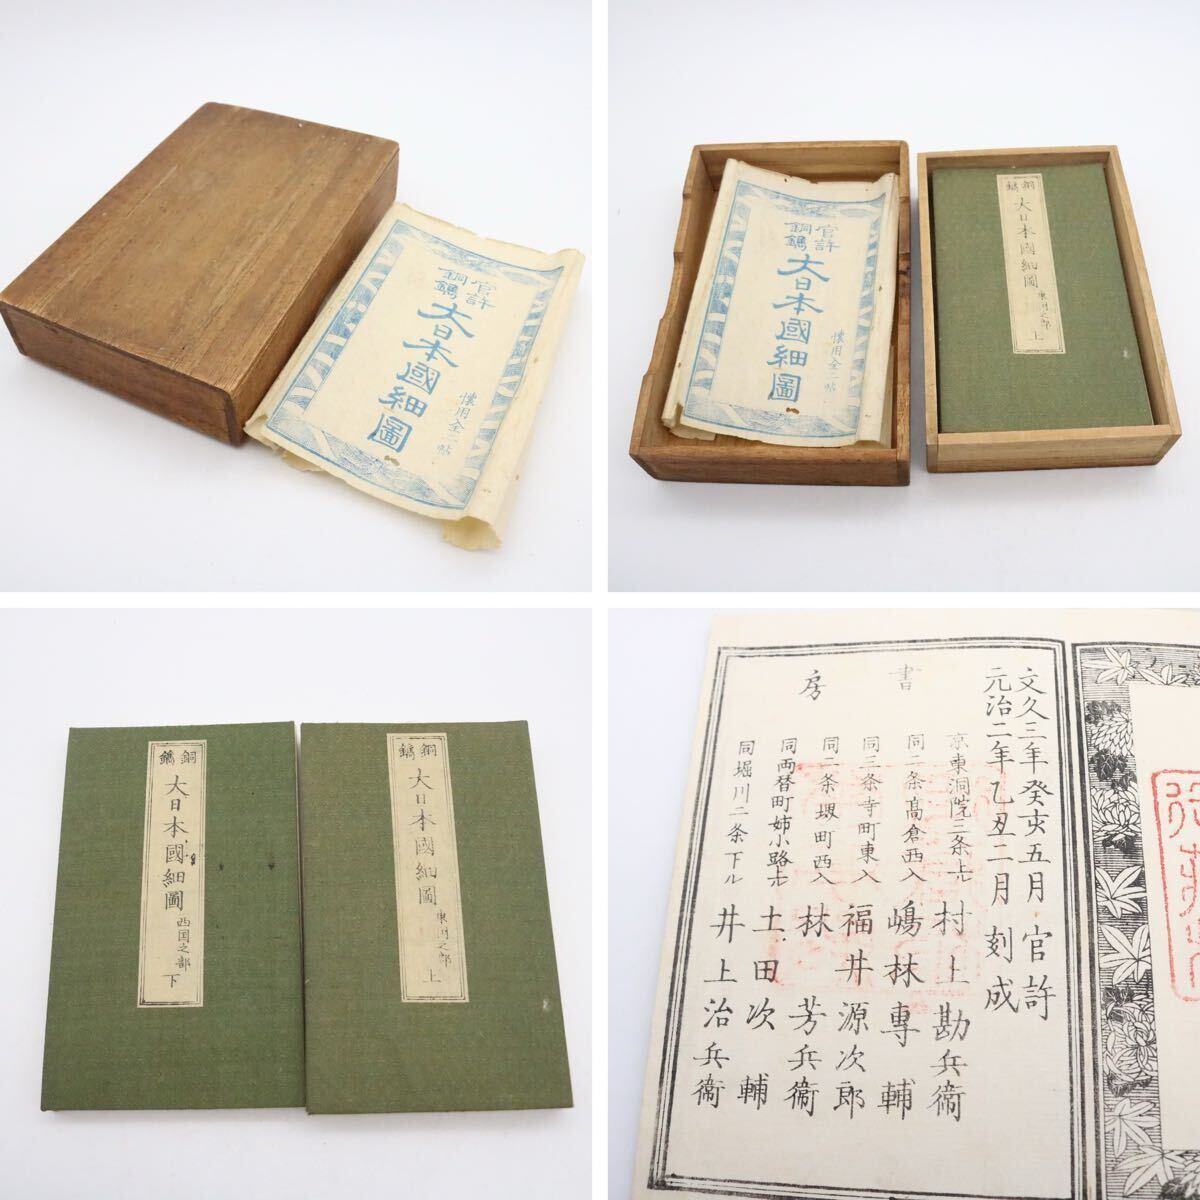 官許
銅鐫
大日本國細圖
懐用全二帖
官許
銅鐫
大日本國細圖
懐用全二帖
銅鐫
大日本國細圖
東国之部
上
銅鐫
大日本國細圖
東国之部
上
銅鐫
大日本國細圖
西国之部
下
文久三年癸亥五月官許
元治二年乙丑二月刻成
書房
京東洞院三条上 村上勘兵衛
同二条高倉西入 嶋林專輔
同三条寺町東入 福井源次郎
同二条堺町西入 林芳兵衛
同両替町姉小路上 土田次輔
同堀川二条下ル 井上治兵衛